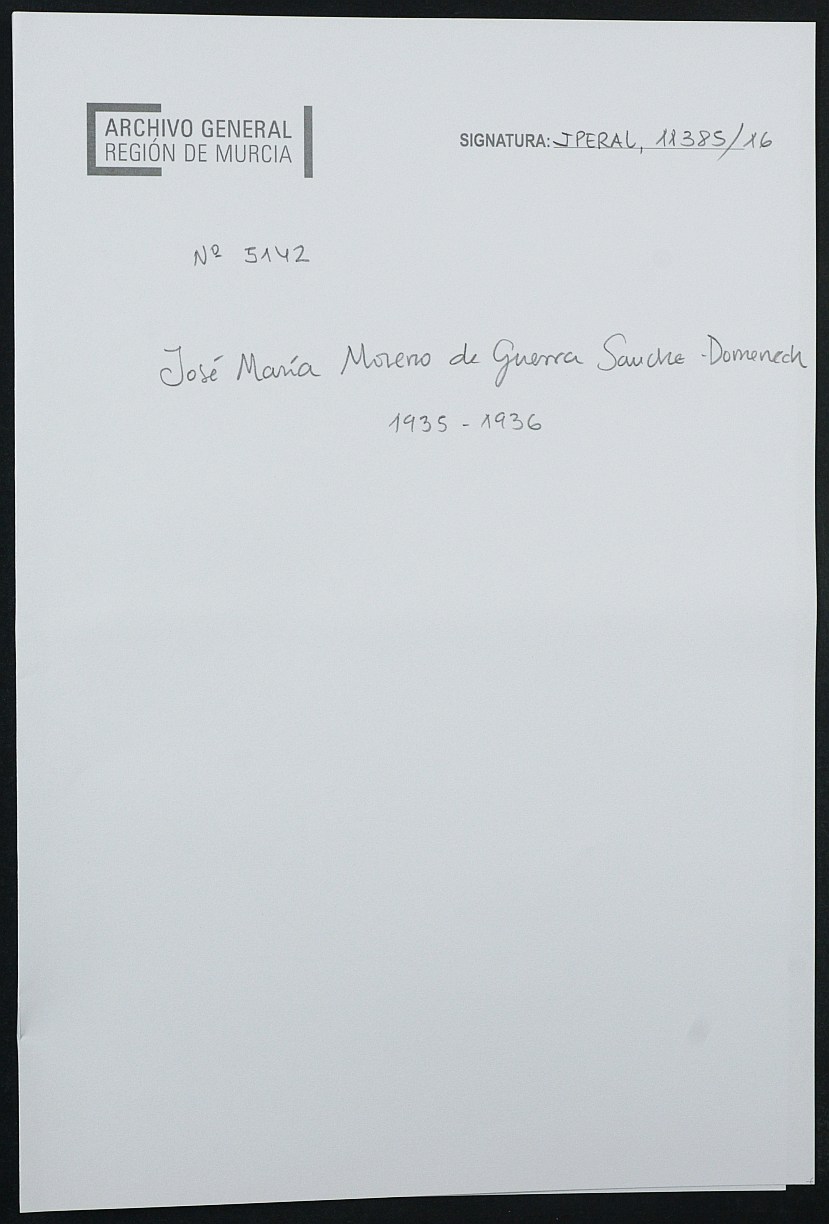 ARCHIVO GENERAL
REGIÓN DE MURCIA
SIGNATURA: JPERAL, 11385/16
Nº 5142
José María Moreno de Guerra Sanche-Domenech
1935 - 1936